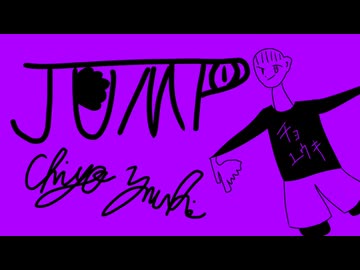 JUMP
Chiyo Yuuki
チョ
ユウキ